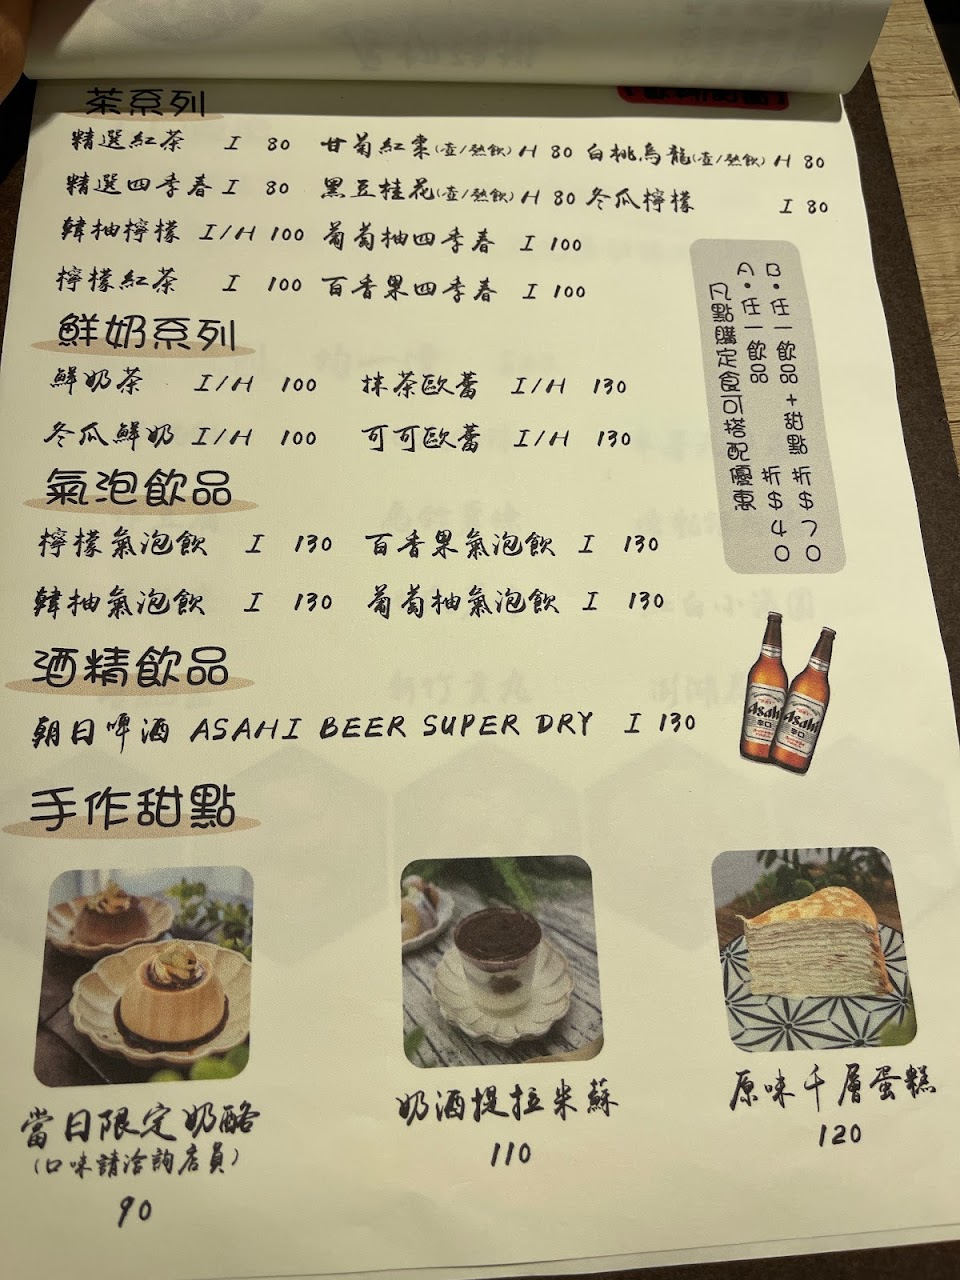 茶系列
精選紅茶 I 80 甘菊紅棗(壺/熱飲) H 80 白桃烏龍(壺/熱飲) H 80
精選四季春 I 80 黑豆桂花(壺/熱飲) H 80 冬瓜檸檬 I 80
韓柚檸檬 I/H 100 葡萄柚四季春 I 100
檸檬紅茶 I 100 百香果四季春 I 100
凡點購定食可搭配優惠
A•任一飲品 折$40
B•任一飲品+甜點 折$70
鮮奶系列
鮮奶茶 I/H 100 抹茶歐蕾 I/H 130
冬瓜鮮奶 I/H 100 可可歐蕾 I/H 130
氣泡飲品
檸檬氣泡飲 I 130 百香果氣泡飲 I 130
韓柚氣泡飲 I 130 葡萄柚氣泡飲 I 130
酒精飲品
朝日啤酒 ASAHI BEER SUPER DRY I 130
Asahi
辛口
Asahi
辛口
手作甜點
當日限定奶酪
(口味請洽詢店員)
90
奶酒提拉米蘇
110
原味千層蛋糕
120